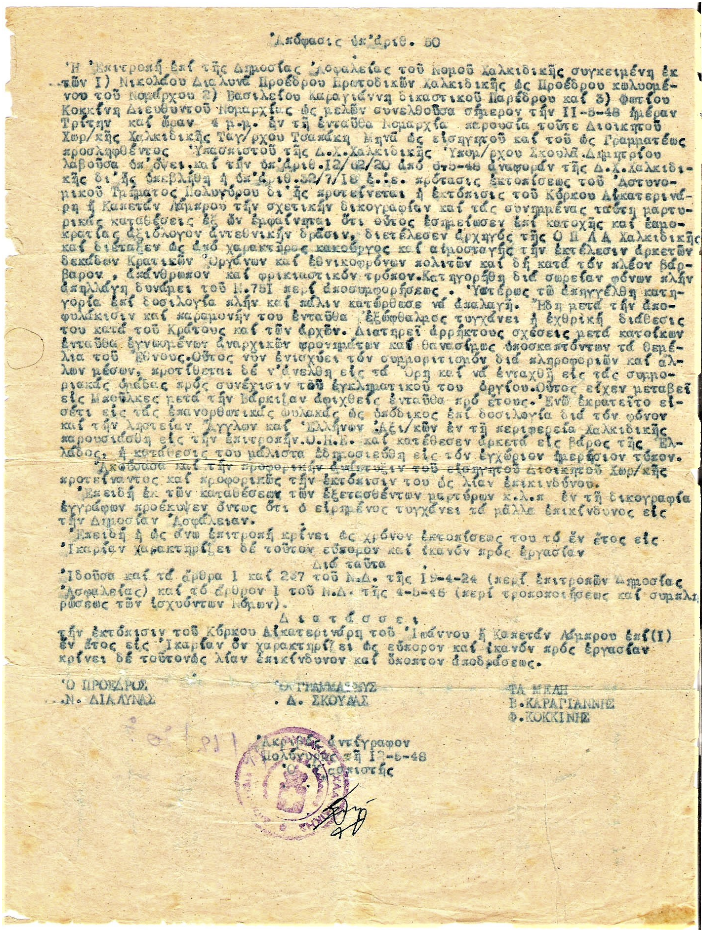 Ἀπόφασις ὑπ'ἀριθ. 50
Ἡ Ἐπιτροπή ἐπί τῆς Δημοσίας Ἀσφαλείας τοῦ Νομοῦ Χαλκιδικῆς συγκειμένη ἐκ
τῶν I) Νικολάου Διαλυνᾶ Προέδρου Πρωτοδικῶν Χαλκιδικῆς ὡς Προέδρου κωλυομέ-
νου τοῦ Νομάρχου 2) Βασιλείου Καραγιάννη δικαστικοῦ Παρέδρου καί 3) Φωτίου
Κοκκίνη Διευθυντοῦ Νομαρχίας ὡς μελῶν συνελθοῦσα σήμερον τήν II-5-48 ἡμέραν
Τρίτην καί ὥραν 4 μ.μ. ἐν τῇ ἐνταῦθα Νομαρχίᾳ παρουσίᾳ τοῦτε Διοικητοῦ
Χωρ/κῆς Χαλκιδικῆς Ταγ/ρχου Τσακάκη Μηνᾶ ὡς εἰσηγητοῦ καί τοῦ ὡς Γραμματέως
προσληφθέντος Ὑπασπιστοῦ τῆς Δ.Χ.Χαλκιδικῆς Ὑπομ/ρχου Σκουλᾶ Δημητρίου
λαβοῦσα ὑπ'ὄψει καί τήν ὑπ'ἀριθ.12/02/20 ἀπό 5-48 ἀναφοράν τῆς Δ.Χ.Χαλκιδι-
κῆς δι'ἧς ὑπεβλήθη ἡ ὑπ'ἀριθ.32/7/18 ἐ.ἔ. πρότασις ἐκτοπίσεως τοῦ Ἀστυνο-
μικοῦ Τμήματος Πολυγύρου δι'ἧς προτείνεται ἡ ἐκτόπισις τοῦ Κόρκου Αἰκατερινά-
ρη ἤ Καπετάν Λάμπρου τήν σχετικήν δικογραφίαν καί τάς συνημένας ταύτῃ μαρτυ-
ρικάς καταθέσεις ἐξ ὧν ἐμφαίνηται ὅτι οὗτος ἐσημείωσεν ἐπί κατοχῆς καί ἐαμο-
κρατίας ἀξιόλογον ἀντεθνικήν δρᾶσιν, διετέλεσεν ἀρχηγός τῆς Ο Π Λ Α Χαλκιδικῆς
καί διέταξεν ὡς ἀπό χαρακτῆρος κακοῦργος καί αἱμοσταγής τήν ἐκτέλεσιν ἀρκετῶν
δεκάδων Κρατικῶν Ὀργάνων καί ἐθνικοφρόνων πολιτῶν καί δή κατά τόν πλέον βάρ-
βαρον , ἀπάνθρωπον καί φρικιαστικόν τρόπον.Κατηγορήθη διά σωρείαν φόνων πλήν
ἀπηλλάγη δυνάμει τοῦ Ν.75I περί ἀποσυμφορήσεως . Ὑστέρως τῷ ἀπηγγέλθη κατη-
γορία ἐπί δοσιλογίᾳ πλήν καί πάλιν κατώρθωσε νά ἀπαλαγῇ. Ἤδη μετά τήν ἀπο-
φυλάκισιν καί παραμονήν του ἐνταῦθα ἐξώφθαλμος τυγχάνει ἡ ἐχθρική διάθεσίς
του κατά τοῦ Κράτους καί τῶν ἀρχῶν. Διατηρεῖ ἀρρήκτους σχέσεις μετά κατοίκων
ἐνταῦθα ἐγνωσμένων ἀναρχικῶν φρονημάτων καί θανασίμως ὑποσκαπτόντων τά θεμέ-
λια τοῦ Ἔθνους.Οὗτος νῦν ἐνισχύει τόν συμμοριτισμόν διά πληροφοριῶν καί ἄλ-
λων μέσων, προτίθεται δέ ν'ἀνέλθῃ εἰς τά Ὄρη καί νά ἐνταχθῇ εἰς τάς συμμο-
ριακάς ὁμάδας πρός συνέχισιν τοῦ ἐγκληματικοῦ του ὀργίου.Οὗτος εἶχεν μεταβεῖ
εἰς Μπούλκες μετά τήν Βάρκιζαν ἀφιχθείς ἐνταῦθα πρό ἔτους.Ἐνῷ ἐκρατεῖτο εἰ-
σέτι εἰς τάς ἐπανορθωτικάς φυλακάς ὡς ὑπόδικος ἐπί δοσιλογίᾳ διά τόν φόνον
καί τήν ληστείαν Ἄγγλων καί Ἑλλήνων Ἀξι/κῶν ἐν τῇ περιφερείᾳ Χαλκιδικῆς
παρουσιάσθη εἰς τήν ἐπιτροπήν.Ο.Η.Ε. καί κατέθεσεν ἀρκετά εἰς βάρος τῆς Ἑλ-
λάδος, ἡ κατάθεσίς του μάλιστα ἐδημοσιεύθη εἰς τόν ἐγχώριον ἡμερήσιον τύπον.
Ἀκούσασα καί τήν προφορικήν ἀνάπτυξιν τοῦ εἰσηγητοῦ Διοικητοῦ Χωρ/κῆς
προτείναντος καί προφορικῶς τήν ἐκτόπισίν του ὡς λίαν ἐπικινδύνου.
Ἐπειδή ἐκ τῶν καταθέσεων τῶν ἐξετασθέντων μαρτύρων κ.λ.π ἐν τῇ δικογραφίᾳ
ἐγγράφων προέκυψεν ὄντως ὅτι ὁ εἰρημένος τυγχάνει τά μάλλα ἐπικίνδυνος εἰς
τήν Δημοσίαν Ἀσφάλειαν.
Ἐπειδή ἡ ὡς ἄνω ἐπιτροπή κρίνει ὡς χρόνον ἐκτοπίσεώς του τό ἕν ἔτος εἰς
Ἰκαρίαν χαρακτηρίζει δέ τοῦτον εὔπορον καί ἱκανόν πρός ἐργασίαν
Διά ταῦτα
Ἰδοῦσα καί τά ἄρθρα I καί 237 τοῦ Ν.Δ. τῆς I9-4-24 (περί ἐπιτροπῶν Δημοσίας
Ἀσφαλείας) καί τό ἄρθρον I τοῦ Ν.Δ. τῆς 4-5-46 (περί τροποποιήσεως καί συμπλη
ρώσεως τῶν ἰσχυόντων Νόμων).
Δ ι α τ ά σ σ ε ι
τήν ἐκτόπισιν τοῦ Κόρκου Αἰκατερινάρη τοῦ Ἰωάννου ἤ Καπετάν Λάμπρου ἐπί(I)
ἕν ἔτος εἰς Ἰκαρίαν ὅν χαρακτηρίζει ὡς εὔπορον καί ἱκανόν πρός ἐργασίαν
κρίνει δέ τοῦτονὡς λίαν ἐπικίνδυνον καί ὕποπτον ἀποδράσεως.
Ὁ ΠΡΟΕΔΡΟΣ Ὁ ΓΡΑΜΜΑΤΕΥΣ ΤΑ ΜΕΛΗ
.Ν. ΔΙΑΛΥΝΑΣ . Δ. ΣΚΟΥΛΑΣ Β.ΚΑΡΑΓΙΑΝΝΗΣ
Φ.ΚΟΚΚΙΝΗΣ
Ἀκριβές ἀντίγραφον
Πολύγυρος τῇ I2-5-48